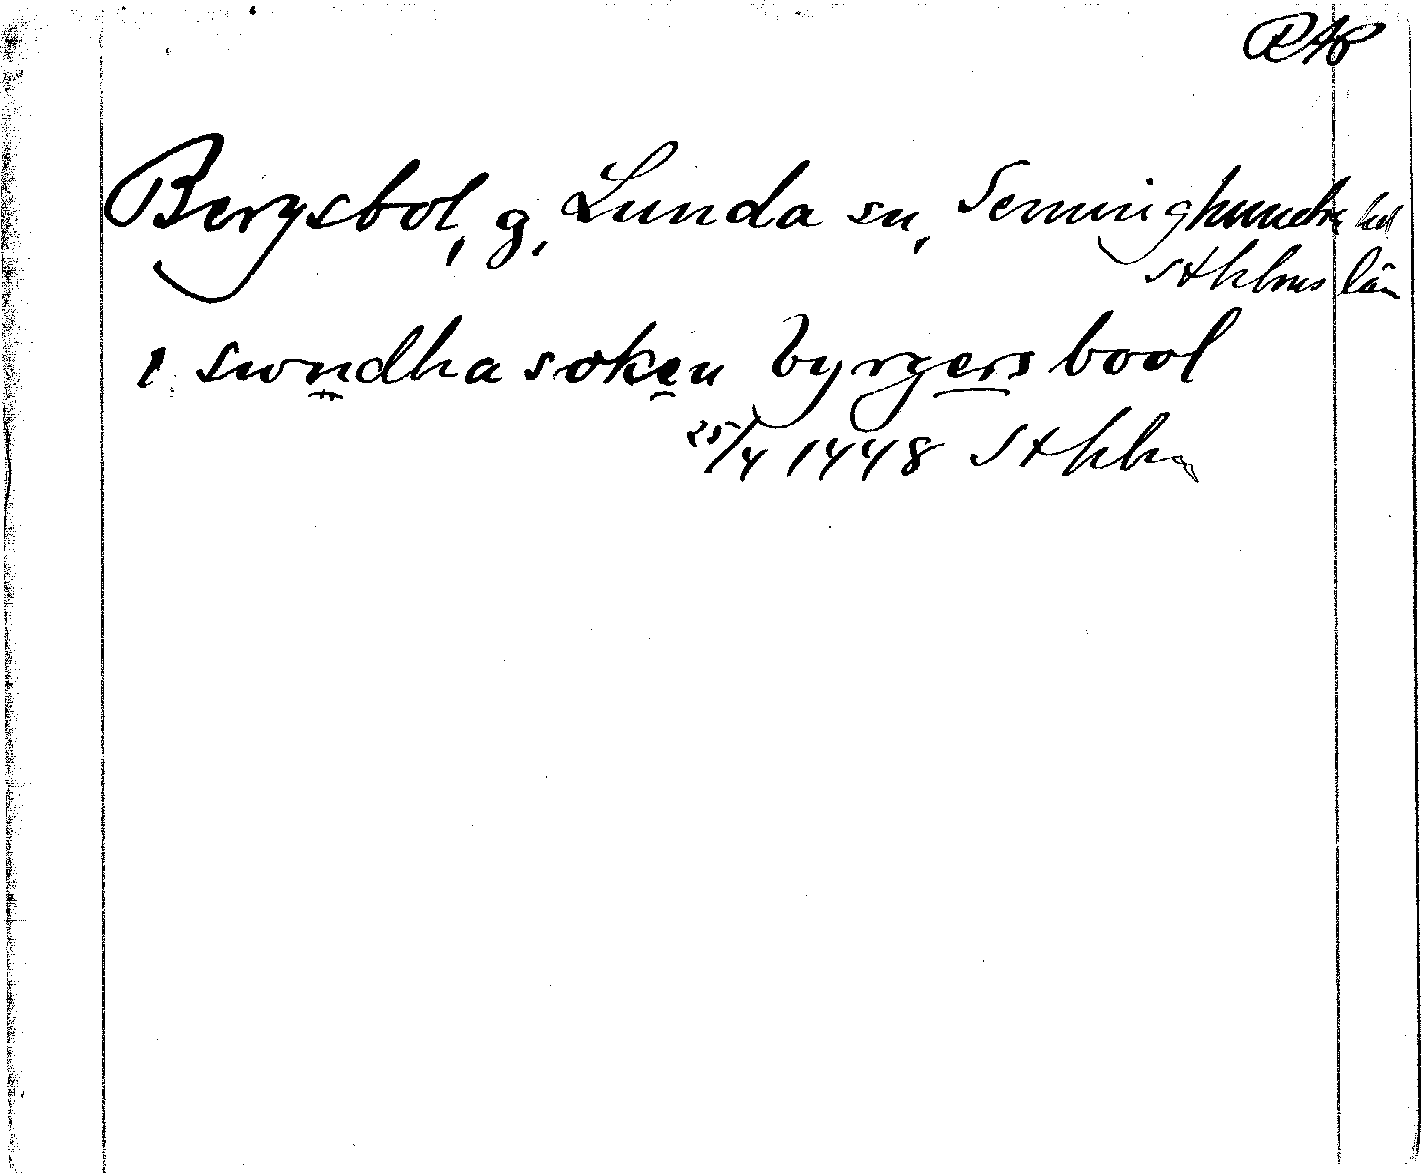 RAP
Bergsbol, g, Lunda sn, Seminghundra hd
Sthlms län
i swndha soken byrgers bool
25/4 1448 Sthlm